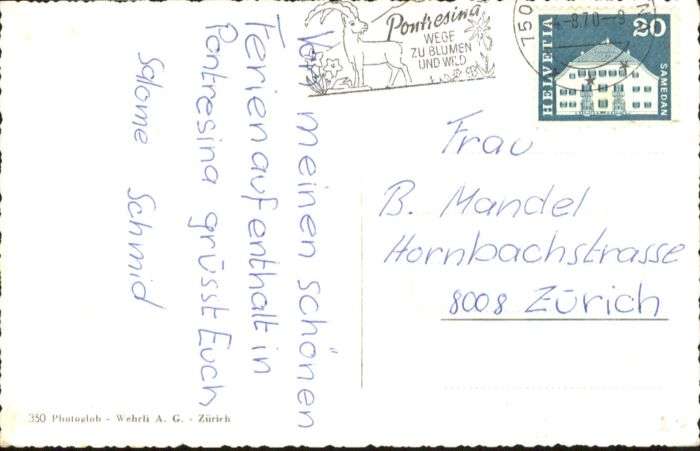 Pontresina
WEGE
ZU BLUMEN
UND WILD
750
-8.70-9
HELVETIA
20
SAMEDAN
Von meinen schönen
Ferienaufenthalt in
Pontresina grüsst Euch
Salome Schmid
Frau
B. Mandel
Hornbachstrasse
8008 Zürich
350 Photoglob - Wehrli A. G. - Zürich